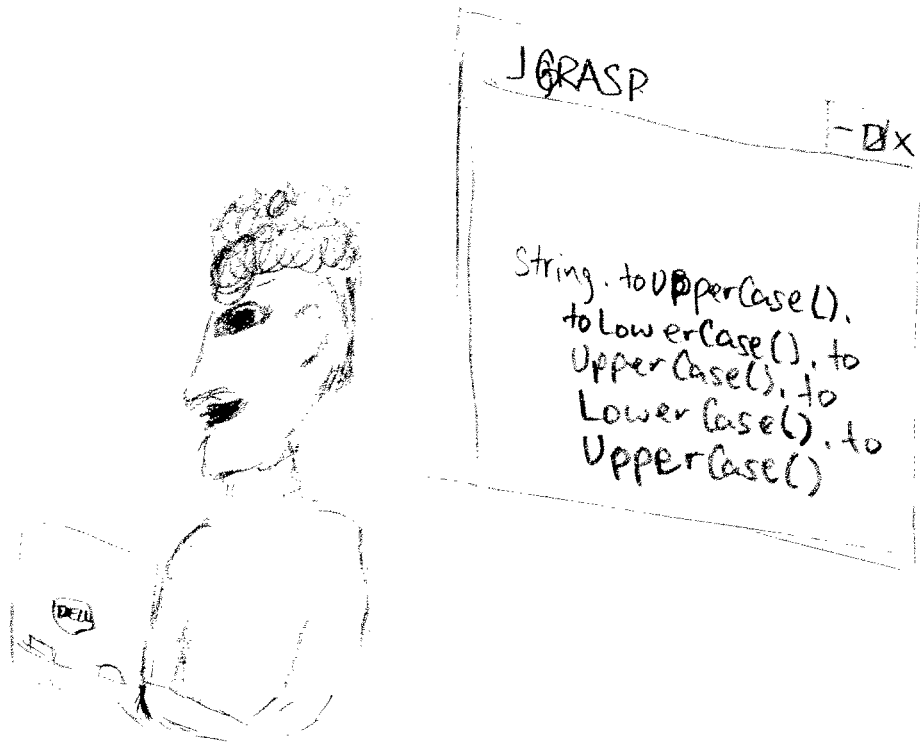 JGRASP
- □ x
String.toUpperCase().
toLowerCase().to
UpperCase().to
LowerCase().to
UpperCase()
DELL